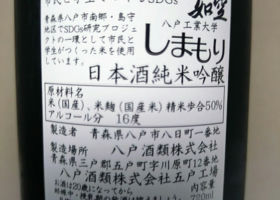 市民と学生でつくるSDGs
青森県八戸市南郷・島守
地区でSDGs研究プロジェ
クトの一環として市民と
学生がつくった米を使用
しています。
如空
八戸工業大学
しまもり
日本酒純米吟醸
原材料名
米(国産)、米麹(国産米)精米歩合50%
アルコール分 16度
製造者 青森県八戸市八日町一番地
八戸酒類株式会社
製造場所 青森県三戸郡五戸町字川原町12番地
八戸酒類株式会社五戸工場
お酒は20歳になってから
720ml